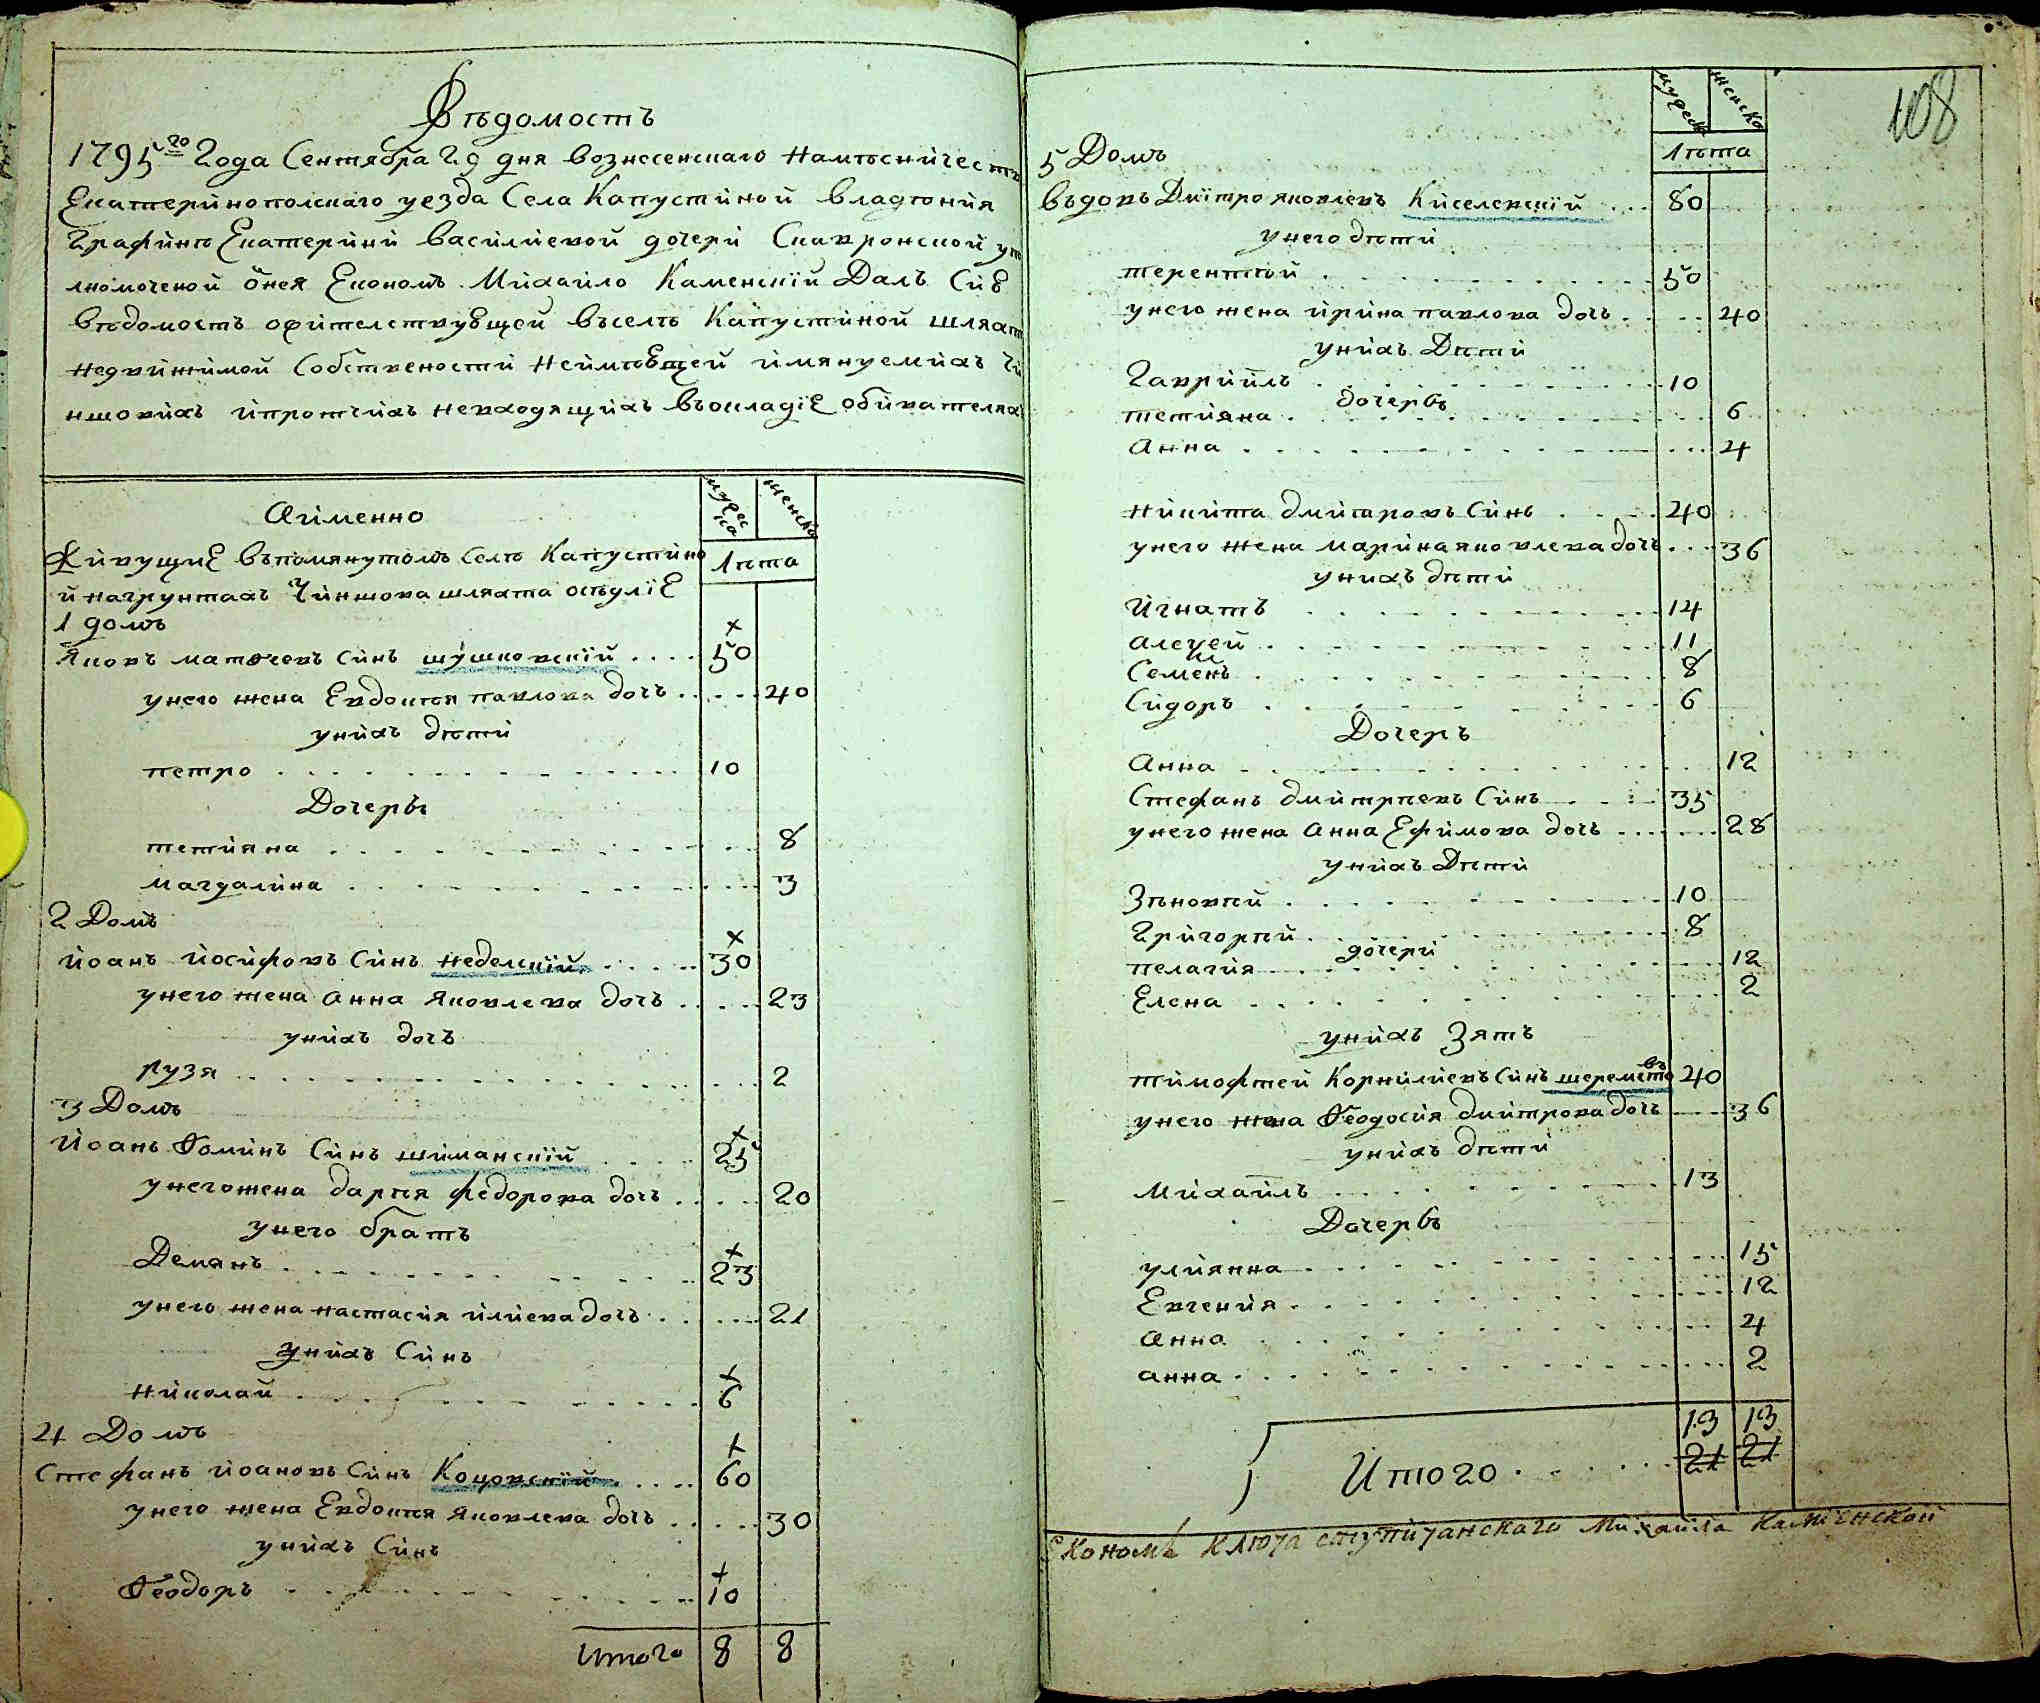 Вѣдомость
1795го года Сентября 29 дня вознесенскаго намѣсничеств
Екатеринополскаго уезда Села Капустиной владѣния
Графинѣ Екатерини василиевой дочери Скавронской упо
лномоченой ѿнея Економъ Михайло Каменскій Далъ Сию
вѣдомость ожителствующей въселѣ Капустиной шляхт
недвижимой Собствености неимѣющей имянуемихъ чи
ншовихъ ипротчихъ невходящихъ въокладіе обивателях
Аименно
мужеска
женска
Живущие въпомянутомъ Селѣ Капустино
й нагрунтахъ Чиншова шляхта оседліе
лѣта
1 домъ
Яковъ матвеевъ Синъ шушковскій 50
унего жена Евдокия павлова дочь 40
унихъ дѣти
петро 10
Дочеры
тетияна 8
магдалина 3
2 Домъ
йоанъ йосифовъ Синъ неделскій 30
унего жена анна яковлева дочь 23
унихъ дочь
рузя 2
3 Домъ
йоанъ Ѳоминъ Синъ шиманскій 25
унегожена дария федорова дочь 20
унего братъ
Демянъ 23
унего жена настасия илиева дочь 21
унихъ Синъ
николай 6
4 Домъ
Стефанъ йоановъ Синъ Коцовскій 60
унего жена Евдокия яковлева дочь 30
унихъ Синъ
Ѳеодоръ 10
Итого 8 8
108
мужеска
женска
лѣта
5 Домъ
въдовъ Дмитро яковлевъ Киселевскій 80
унего дѣти
терентий 50
унего жена ирина павлова дочь 40
унихъ Дѣти
Гавриилъ 10
дочеры
тетияна 6
Анна 4
никита дмитровъ Синъ 40
унего жена маринаяковлевадочь 36
унихъ дѣти
игнатъ 14
алеѯей 11
Семенъ 8
Сидоръ 6
Дочеръ
Анна 12
Стефанъ дмитриевъ Синъ 35
унего жена анна Ефимова дочь 28
унихъ Дѣти
Зѣновий 10
Григорий 8
дочери
пелагия 12
Елена 2
унихъ Зять
тимофтей Корнилиевъ Синъ шереметовъ 40
унего жена Ѳеодосия дмитрова дочь 36
унихъ дѣти
Михаилъ 13
Дочеры
улиянна 15
Евгения 12
анна 4
анна 2
13 13
Итого 21 21
Економъ ключа ступичанскаго Михаила Каминской